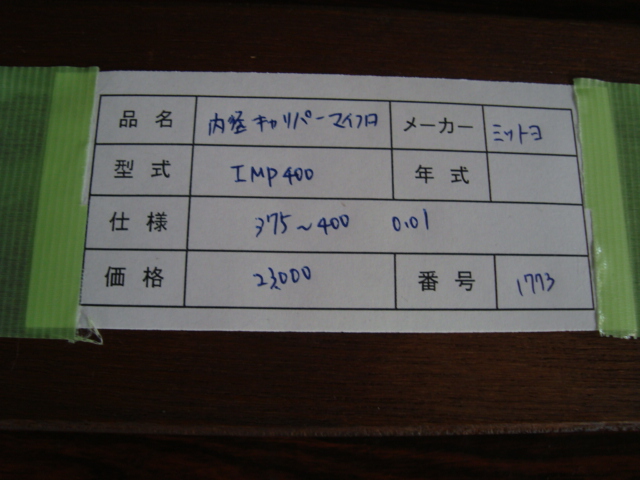 品名 内径キャリパーマイクロ メーカー ミツトヨ
型式 IMP400 年式
仕様 375～400 0.01
価格 23,000 番号 1773